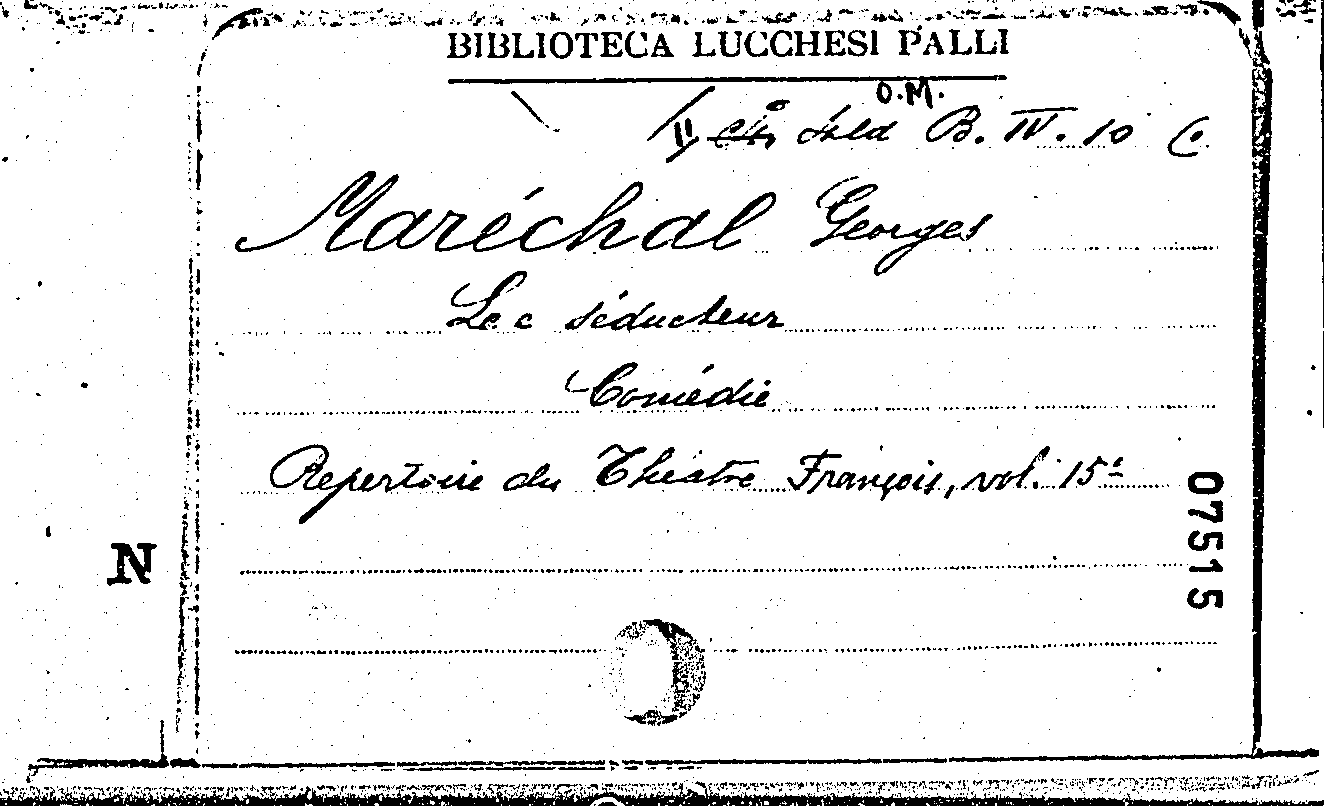 BIBLIOTECA LUCCHESI PALLI
O.M.
B. IV. 10 (.
Maréchal Georges
Le séducteur
Comédie
Repertoire du Théatre François, vol. 15º
07515
N